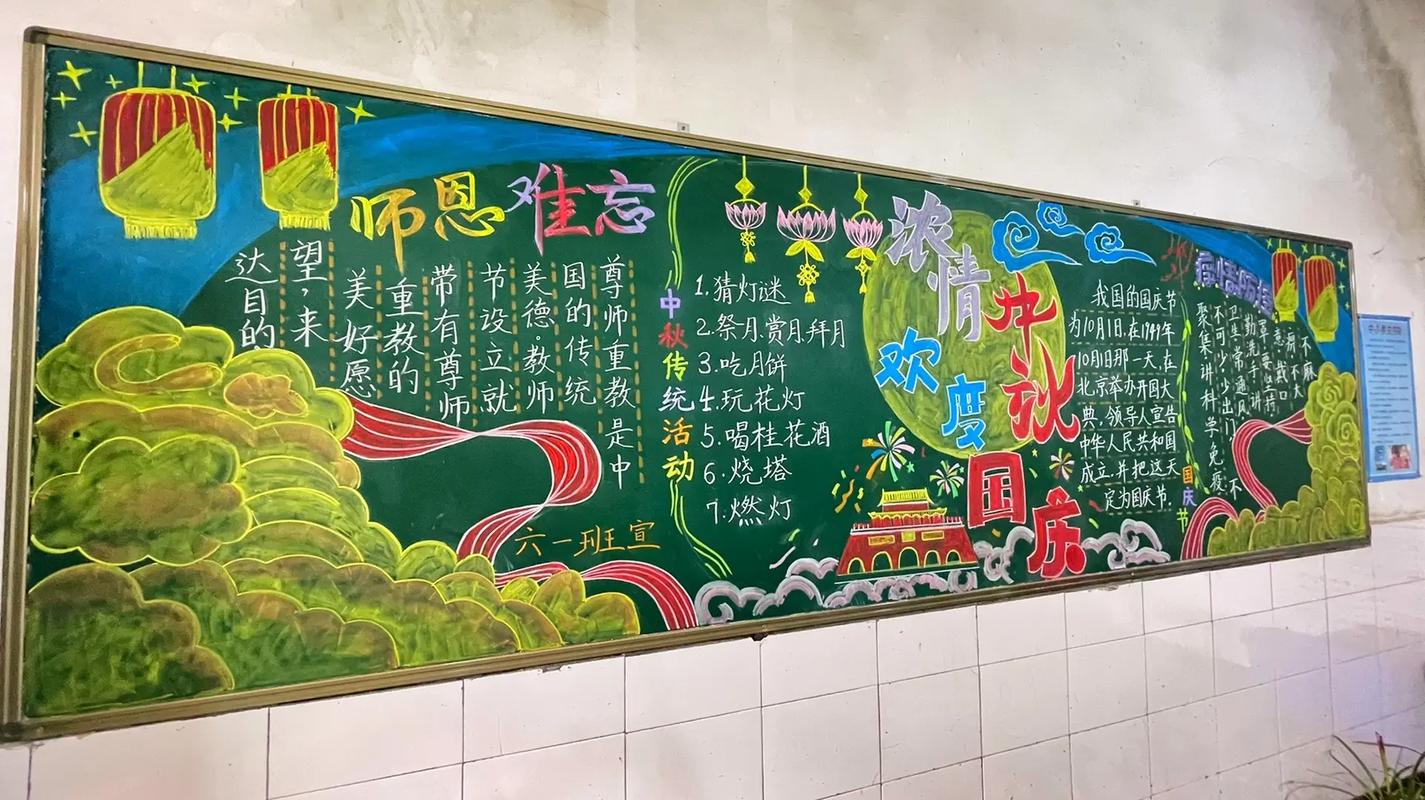 师恩难忘
尊师重教是中
国的传统
美德.教师
节设立就
带有尊师
重教的
美好愿
望,来
达目的
六一班宣
中秋传统活动
1.猜灯谜
2.祭月赏月拜月
3.吃月饼
4.玩花灯
5.喝桂花酒
6.烧塔
7.燃灯
浓情中秋
欢度国庆
我国的国庆节
为10月1日.在1949年
10月1日那一天,在
北京举办开国大
典,领导人宣告
中华人民共和国
成立.并把这天
定为国庆节.
国庆节
不麻
意.戴口
勤洗手讲
卫生常通风
不可少少出门不
聚集讲科学免疫